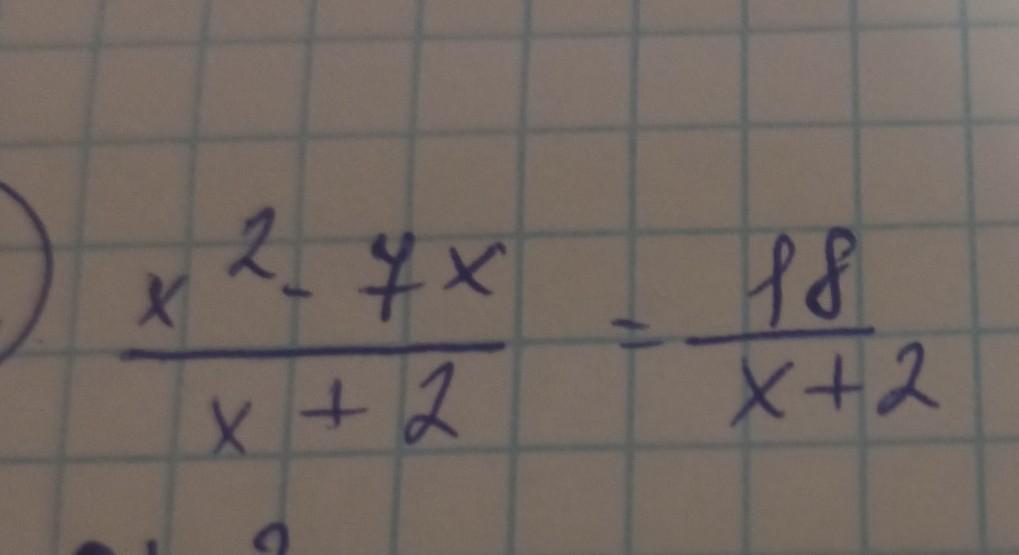 ) x² - 7x / x + 2 = 18 / x + 2